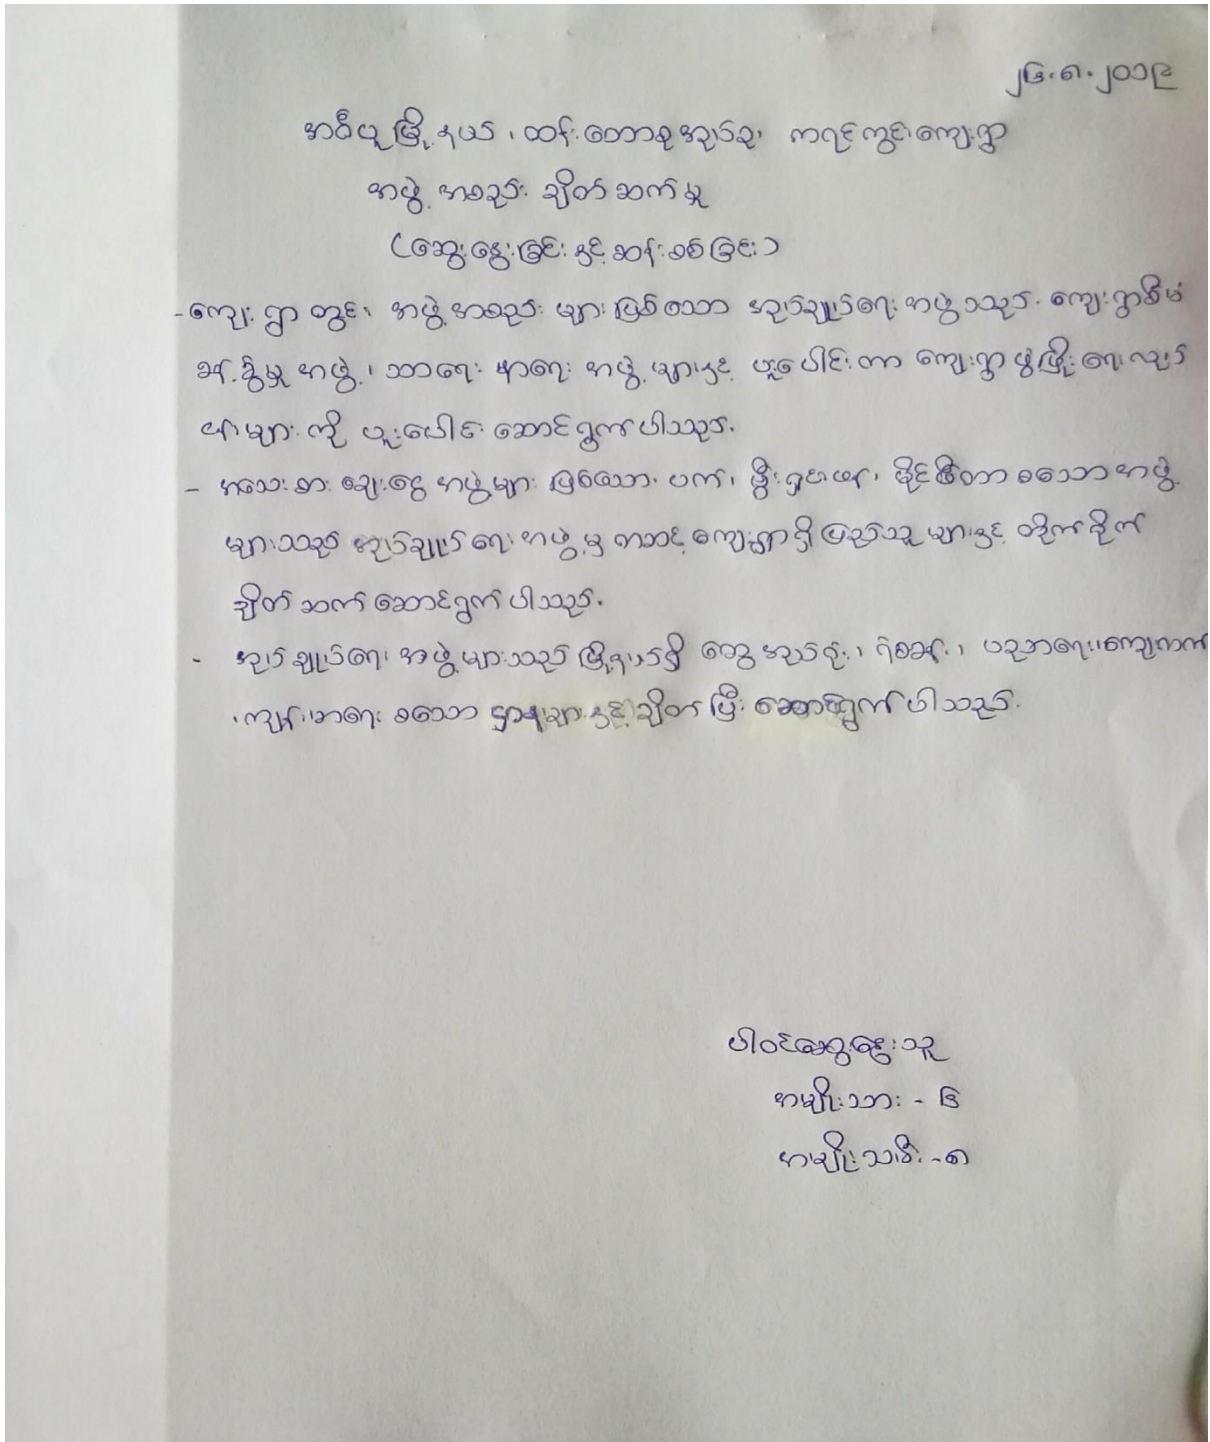 ၂၆.၈.၂၀၁၉
ဇီဖြူမြို့နယ်၊ ထန်းတောစုအုပ်စု၊ ကရင်ကွင်းကျေးရွာ
အဖွဲ့အစည်းချိတ်ဆက်မှု
(ဆွေးနွေးခြင်းနှင့်ဆန်းစစ်ခြင်း)
-ကျေးရွာတွင်၊ အဖွဲ့အစည်းများဖြစ်သော အုပ်ချုပ်ရေးအဖွဲ့သည် ကျေးရွာစီမံ
ခန့်ခွဲမှုအဖွဲ့၊ သာရေးနာရေးအဖွဲ့များနှင့် ပူးပေါင်းကာ ကျေးရွာဖွံ့ဖြိုးရေးလုပ်
ငန်းများကို ပူးပေါင်းဆောင်ရွက်ပါသည်.
- အသေးစားချေးငွေအဖွဲ့များဖြစ်သော ပက်၊ စသောအဖွဲ့
များသည် အုပ်ချုပ်ရေးအဖွဲ့မှတဆင့်ကျေးရွာရှိပြည်သူများနှင့် တိုက်ရိုက်
ချိတ်ဆက်ဆောင်ရွက်ပါသည်.
- အုပ်ချုပ်ရေးအဖွဲ့များသည်မြို့နယ်ရှိ ထွေအုပ်ရုံး၊ ရဲစခန်း၊ ပညာရေး၊ကျေးလက်
၊ကျန်းမာရေးစသော ဌာနများနှင့်ချိတ်ပြီးဆောင်ရွက်ပါသည်.
ပါဝင်ဆွေးနွေးသူ
အမျိုးသား - ၆
အမျိုးသမီး -၈